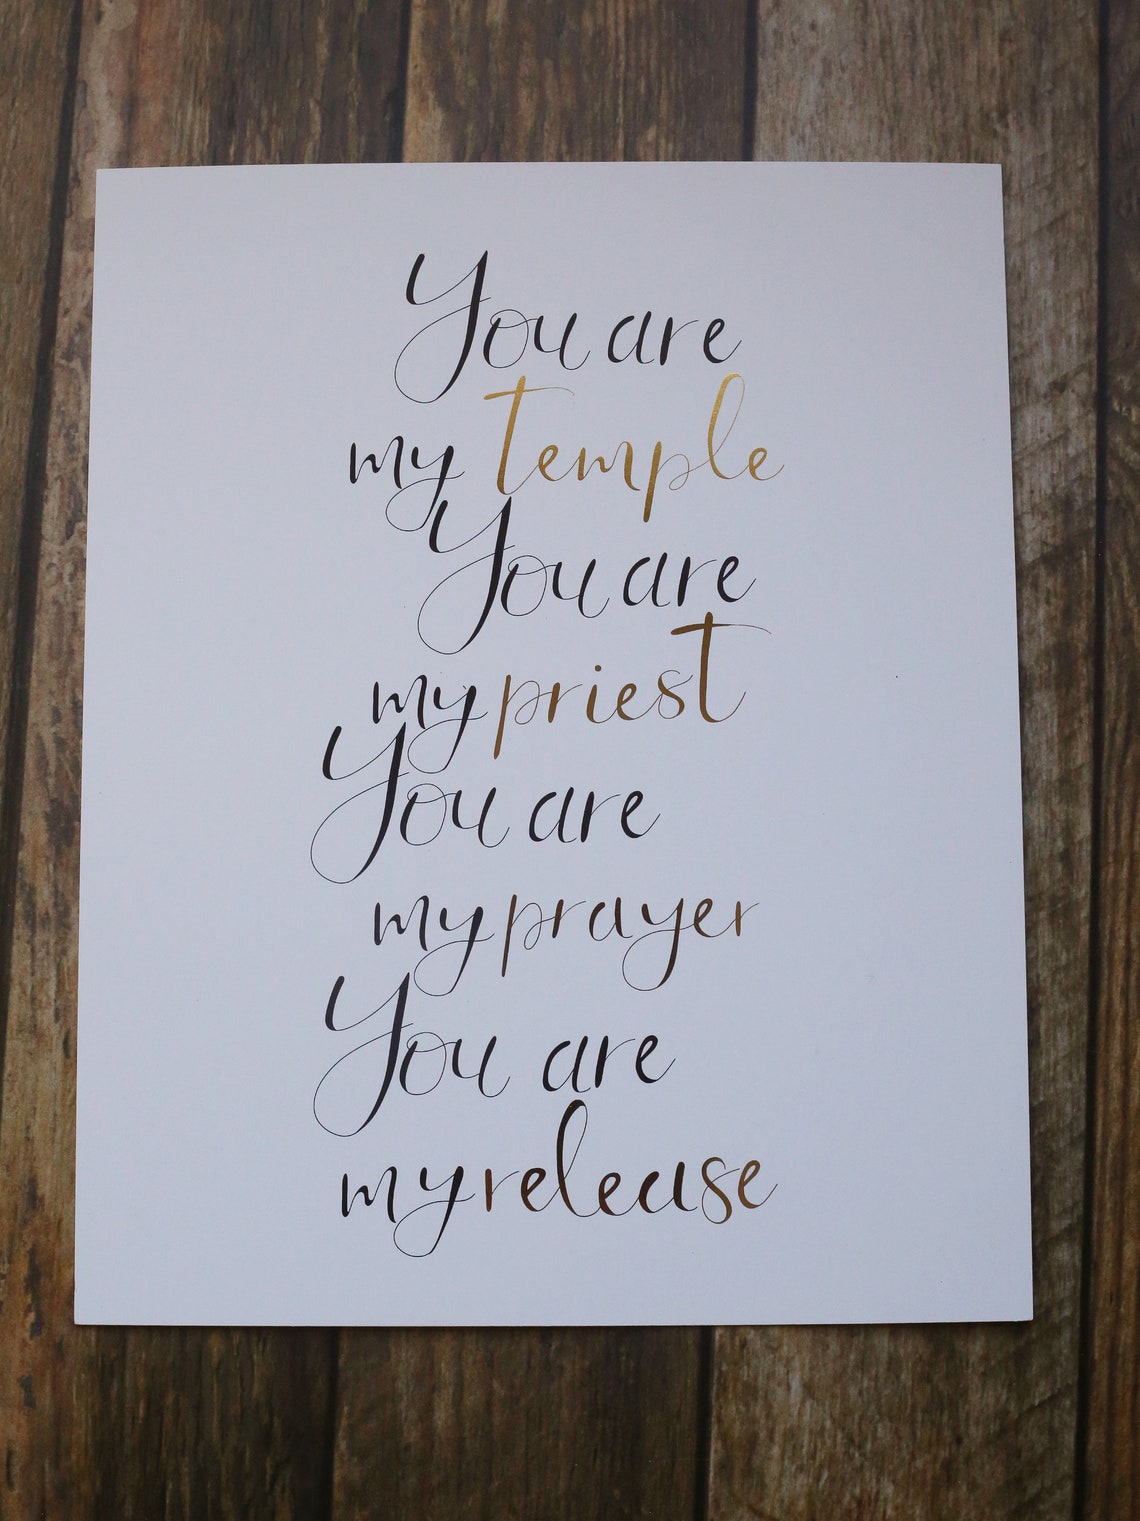 You are
my temple
You are
my priest
You are
my prayer
You are
my release